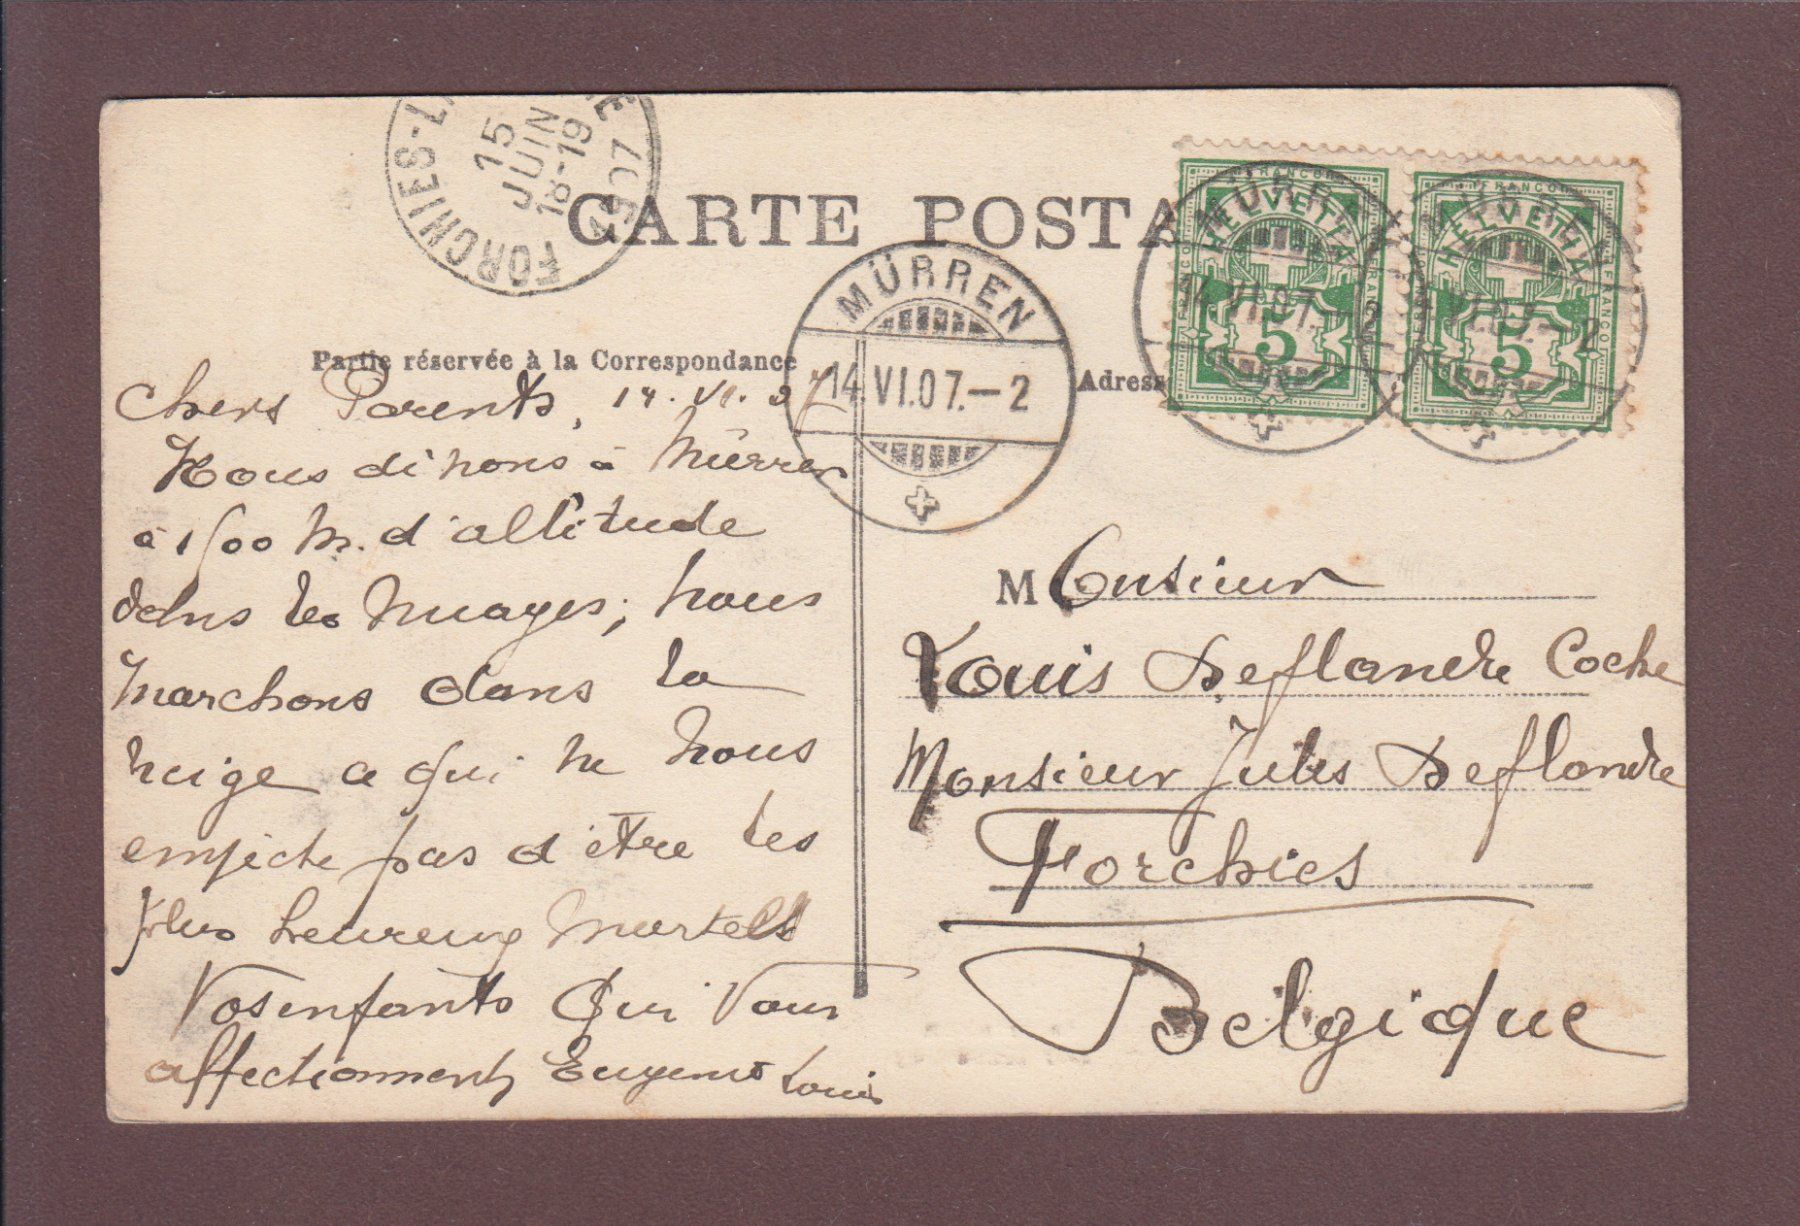 FORCHIES-L E
15
JUIN
18-19
1907
CARTE POSTA
MÜRREN
14.VI.07.-2
FRANCO
HELVETIA
5
MÜRREN
14.VI.07.-2
FRANCO
HELVETIA
5
MÜRREN
VI.07.-2
Partie réservée à la Correspondance
Adress
Chers Parents, 14. VI. 07
Nous dinons à Mürren
à 1600 m. d'altitude
dans les nuages; nous
marchons dans la
neige ce qui ne nous
empêche pas d'être les
plus heureux mortels
Vos enfants qui vous
affectionnent Eugenie Louis
Monsieur
Louis Deflandre Coche
Monsieur Jules Deflandre
Forchies
Belgique